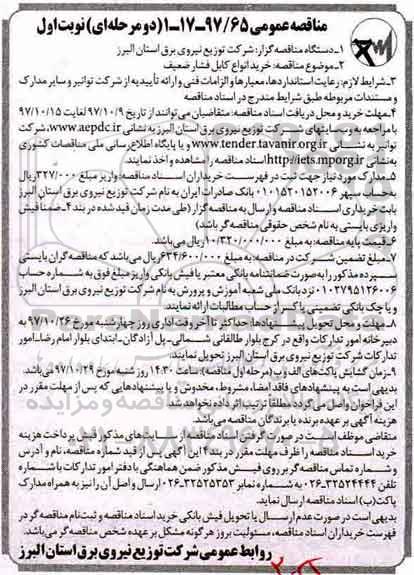 مناقصه عمومی ۹۷/۶۵-۱۷-۱ (دو مرحله‌ای) نوبت اول
۱-دستگاه مناقصه گزار: شرکت توزیع نیروی برق استان البرز
۲-موضوع مناقصه: خرید انواع کابل فشار ضعیف
۳-شرایط لازم: رعایت استانداردها، معیارها و الزامات فنی و ارائه تأییدیه از شرکت توانیر و سایر مدارک
و مستندات مربوطه طبق شرایط مندرج در اسناد مناقصه
۴-مهلت خرید و محل دریافت اسناد مناقصه: متقاضیان می‌توانند از تاریخ ۹۷/۱۰/۹ لغایت ۹۷/۱۰/۱۵
با مراجعه به وبسایتهای شرکت توزیع نیروی برق استان البرز به نشانی www.aepdc.ir، شرکت
توانیر به نشانی www.tender.tavanir.org.ir و یا پایگاه اطلاع رسانی ملی مناقصات کشوری
به نشانی http://iets.mporg.ir اسناد مناقصه را مشاهده و اخذ نمایند.
۵-مدارک مورد نیاز جهت ثبت در فهرست خریداران اسناد مناقصه: واریز مبلغ ۳۲۷/۰۰۰ ریال
به حساب سپهر ۰۱۰۱۵۲۰۱۵۲۰۰۶ بانک صادرات ایران به نام شرکت توزیع نیروی برق استان البرز
بابت خریداری اسناد مناقصه و ارسال به مناقصه گزار (طی مدت زمان قید شده در بند ۴-ضمنا فیش
واریزی بایستی به نام شخص حقوقی مناقصه گر باشد)
۶-قیمت پایه مناقصه: به مبلغ ۱۰/۳۲۰/۰۰۰/۰۰۰ ریال می‌باشد.
۷-مبلغ تضمین شرکت در مناقصه: به مبلغ ۶۳۴/۶۰۰/۰۰۰ ریال می‌باشد که مناقصه گران بایستی
سپرده مذکور را به صورت ضمانتنامه بانکی معتبر یا فیش بانکی واریز مبلغ فوق به شماره حساب
۰۱۰۲۷۹۵۱۲۶۰۰۶ نزد بانک ملی شعبه آموزش و پرورش به نام شرکت توزیع نیروی برق استان البرز
و یا چک بانکی تضمینی یا کسر از حساب مطالبات ارائه نمایند.
۸-مهلت و محل تحویل پیشنهادها: حداکثر تا آخر وقت اداری روز چهارشنبه مورخ ۹۷/۱۰/۲۶ به
دبیرخانه امور تدارکات واقع در کرج بلوار طالقانی شمالی-پل آزادگان-ابتدای بلوار امام رضا-امور
تدارکات شرکت توزیع نیروی برق استان البرز تحویل نمایند.
۹-زمان گشایش پاکت‌های الف و ب (مرحله اول مناقصه): ساعت ۱۴:۳۰ روز شنبه مورخ ۹۷/۱۰/۲۹ می‌باشد.
بدیهی است به پیشنهادهای فاقد امضا، مشروط، مخدوش و یا پیشنهادهایی که پس از مهلت مقرر در
این فراخوان واصل می‌گردد مطلقاً ترتیب اثر داده نخواهد شد.
هزینه آگهی بر عهده برنده یا برندگان مناقصه می‌باشد.
متقاضی موظف است در صورت گرفتن اسناد مناقصه از سایت‌های مذکور فیش پرداخت هزینه
خرید اسناد مناقصه را ظرف مهلت مقرر در بند ۴ این آگهی پس از قید شماره مناقصه، نام و آدرس
و شماره تماس مناقصه گر بر روی فیش مذکور ضمن هماهنگی با دفتر امور تدارکات با شماره
تلفن ۳۲۵۲۴۴۴۴-۰۲۶ به شماره نمابر ۳۲۵۲۵۳۵۳-۰۲۶ ارسال و اصل آن را نیز به همراه مدارک
پاکت (ب) اسناد مناقصه ارسال نماید.
بدیهی است در صورت عدم ارسال یا تحویل فیش بانکی خرید اسناد مناقصه و ثبت نام مناقصه گر در
فهرست خریداران اسناد مناقصه، مسئولیت بروز هر گونه مشکل بر عهده شخص مناقصه گر می‌باشد.
روابط عمومی شرکت توزیع نیروی برق استان البرز